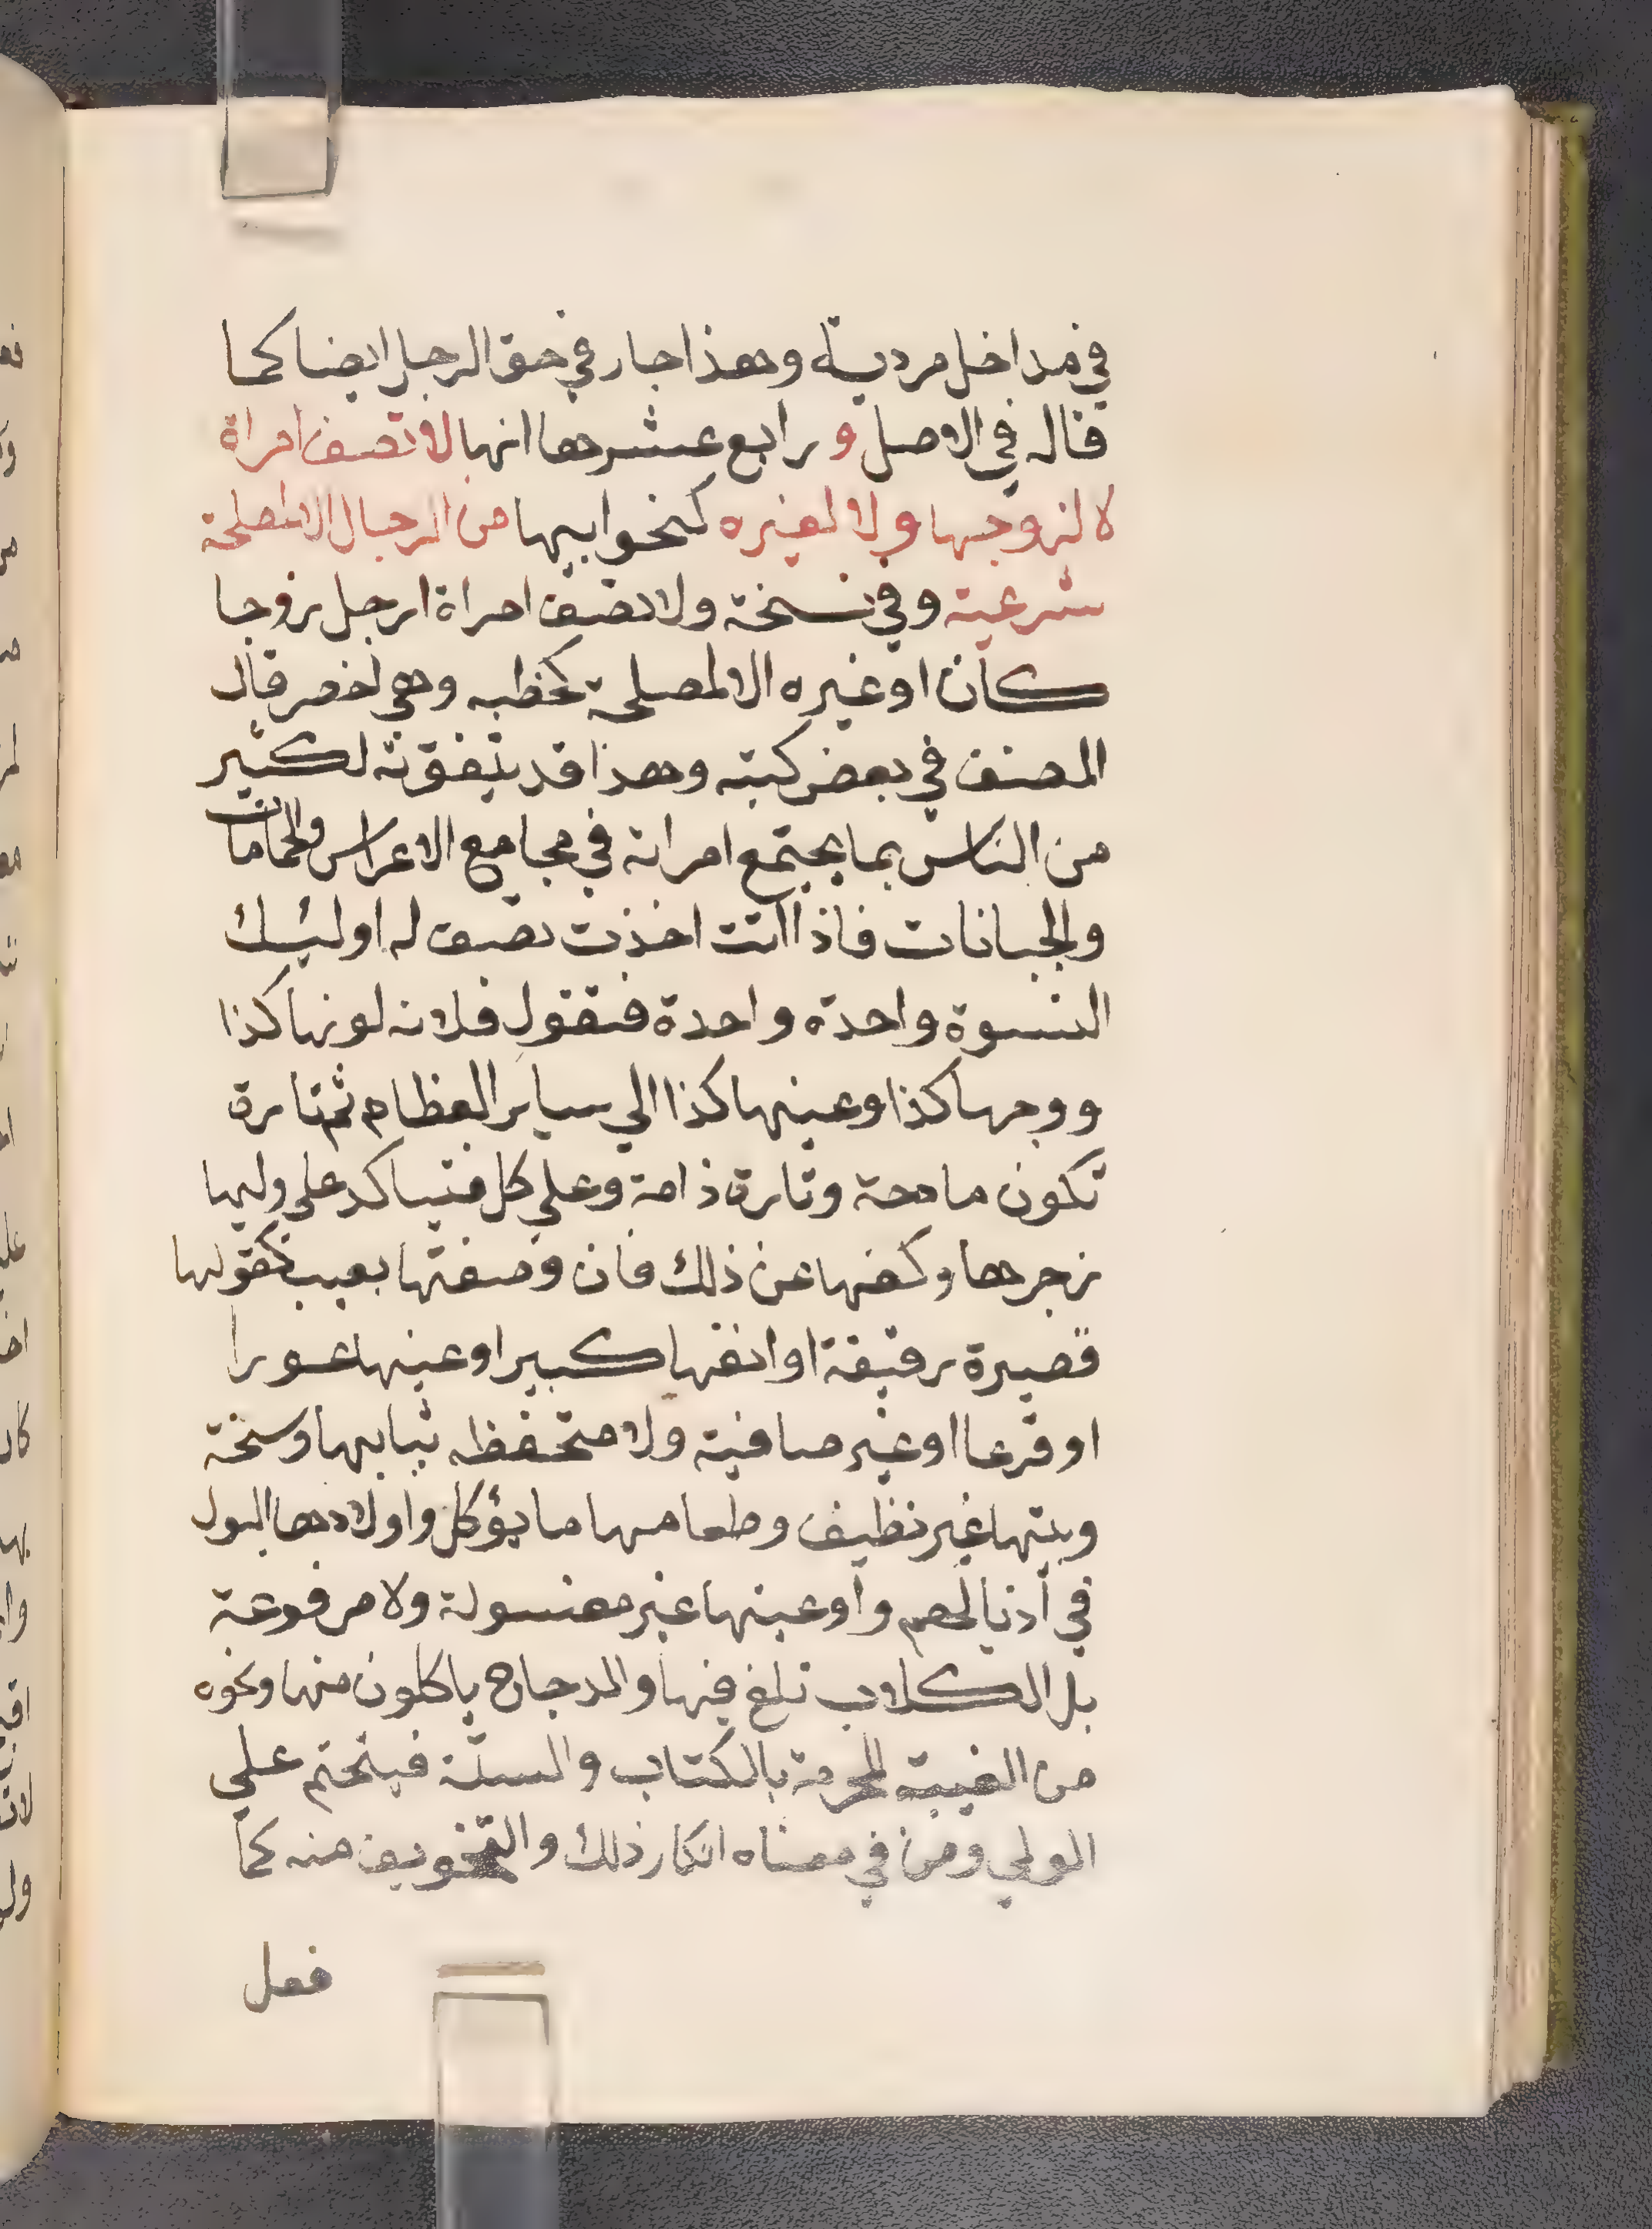 في مداخل مردية وهذا جار في حق الرجل ايضا كما
قاله في الاصل و رابع عشرها انها لا تصف امراة
لا لزوجها ولا لغيره كنحو ابيها من الرجال الا لمصلحة
شرعية وفي نسخة ولا تصف امراة لرجل زوجا
كان او غيره الا لمصلحة كخطبه وهي اخصر قال
المصنف في بعض كتبه وهذا قد يتفق ته لكثير
من الناس بما يجتمع امراته في مجامع الاعراس والحمامات
والجبانات فاذا اتت اخذت تصف له اوليك
النسوة واحدة واحدة فتقول فلانه لونها كذا
ووجهها كذا وعينها كذا الي ساير العظام ثم تارة
تكون مادحة وتارة ذامة وعلي كل فيتاكد علي وليها
زجرها وكفها عن ذلك فان وصفتها بعيب كقولها
قصيرة رقيقة او انفها كبير او عينها عورا
او قرعا او غير صافية ولا متحفظه ثيابها وسخة
وبيتها غير نظيف وطعامها ما يؤكل واولادها البول
في أذيالهم واوعيتها غير مغسولة ولا مرفوعة
بل الكلاب تلغ فيها والدجاج ياكلون منها ونحوه
من الغيبة المحرمة بالكتاب والسنة فيتحتم علي
الولي ومن في معناه انكار ذلك والتخويف منه كما
فعل